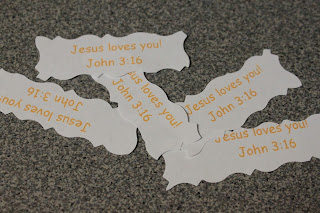 Jesus loves you!
John 3:16
Jesus loves you!
John 3:16
Jesus loves you!
John 3:16
Jesus loves you!
John 3:16
Jesus loves you!
John 3:16